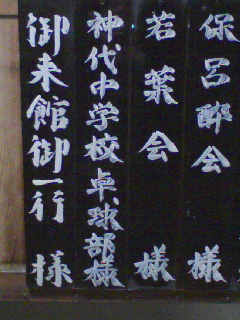 保呂酔会 様
若葉会 様
神代中学校卓球部様
御来館御一行 様